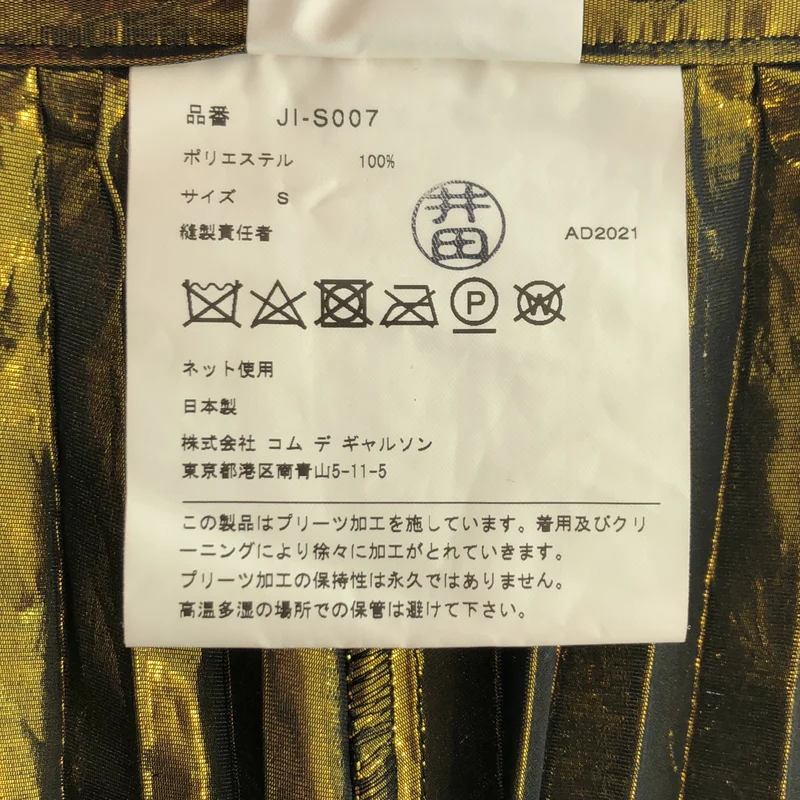 品番 JI-S007
ポリエステル 100%
サイズ S
縫製責任者 井田 AD2021
P W
ネット使用
日本製
株式会社 コム デ ギャルソン
東京都港区南青山5-11-5
この製品はプリーツ加工を施しています。着用及びクリ
ーニングにより徐々に加工がとれていきます。
プリーツ加工の保持性は永久ではありません。
高温多湿の場所での保管は避けて下さい。